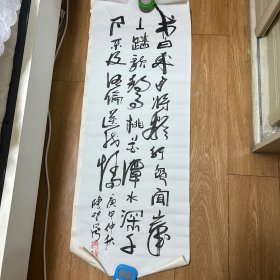 李白乘舟將欲行忽聞岸
上踏歌聲桃花潭水深千
尺不及汪倫送我情
庚申仲秋